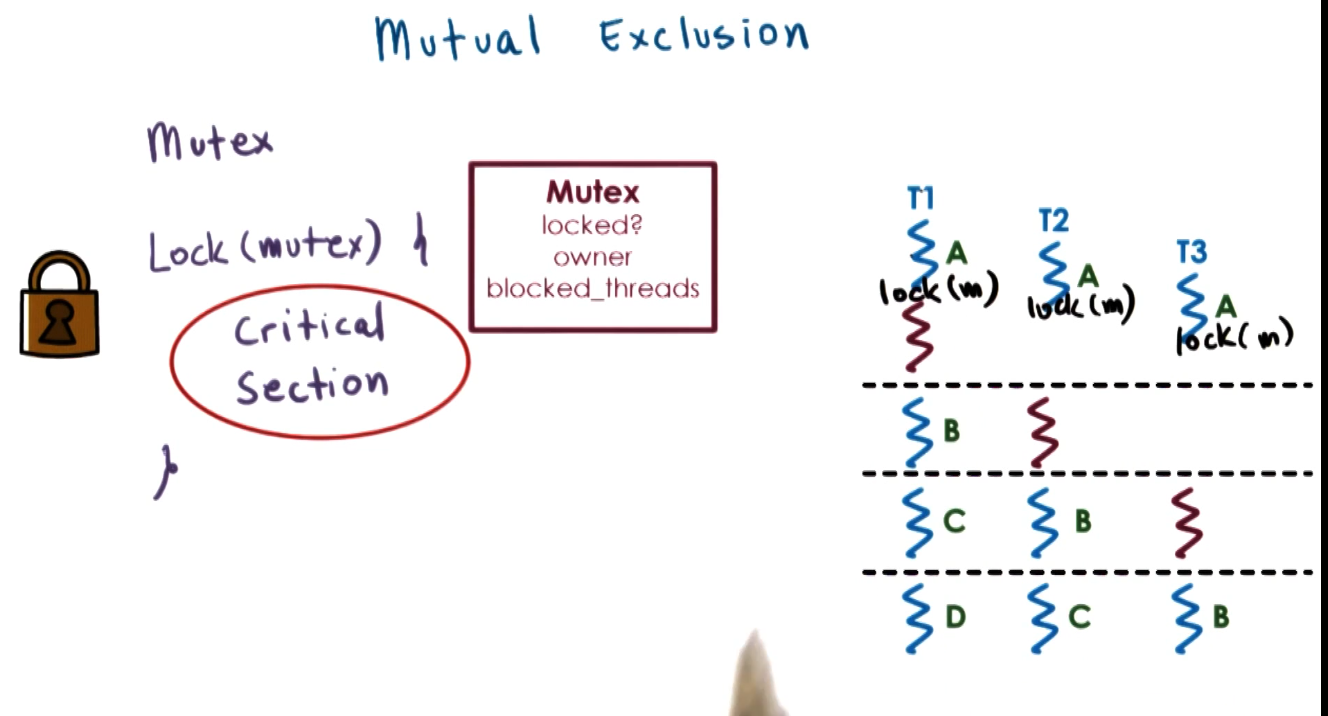 Mutual Exclusion
Mutex
Lock (mutex) {
Critical
Section
}
Mutex
locked?
owner
blocked_threads
T1
A
lock(m)
T2
A
lock(m)
T3
A
lock(m)
B
C
B
D
C
B